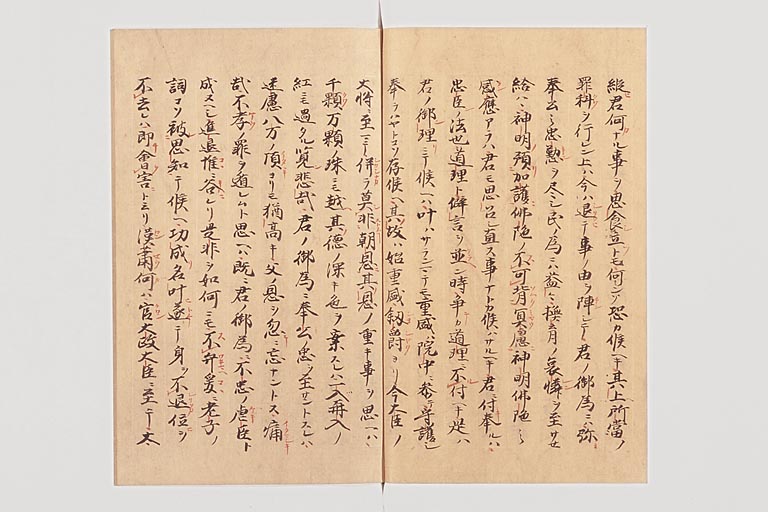 縦君何アル事ヲ思食立トモ何ノ恐カ候ヘキ其上所當ノ
罪科ヲ行レン上ハ今ハ退テ事ノ由ヲ陣シテ君ノ御爲ニハ弥
奉公ノ忠懃ヲ尽シ民ノ爲ニハ益々撫育ノ哀憐ヲ至サセ
給ハヽ神明預加護佛陁ノ不可背冥慮神明佛陁
感應アラハ君モ思召直ス事ナトカ候ハサルヘキ君ニ付奉ルハ
忠臣ノ法也道理ト僻言ヲ並ンニ時爭カ道理ニ不付ヘキ是ハ
君ノ御理ニテ候ヘハ叶ハサランマテモ重盛ハ院中ニ参テ守護シ
奉ラハヤトコソ存候ヘ其故ハ始重盛叙爵ヨリ今大臣ノ
大将ニ至マテ併ラ莫非朝恩其恩ノ重キ事ヲ思ヘハ
千顆万顆ノ珠ニモ越其德ノ深キ色ヲ案スレハ一入再入ノ
紅ニモ過タル覧悲哉君ノ御爲ニ奉公忠ヲ至サントスレハ
迷慮八万ノ頂ヨリモ猶高キ父ノ恩ヲ忽ニ忘ナントス痛
哉不孝ノ罪ヲ遁レムト思ヘハ既ニ君ノ御爲ニ不忠ノ虐臣ト
成ヌヘシ進退惟谷レリ是非ヲ如何ニモ不弁爰ニ老子ノ
詞コソ被思知テ候ヘ功成名叶遂テ身ヲ不退位ヲ
不去レハ即會害トミヘリ漢蕭何ハ官大政大臣ニ至テ太